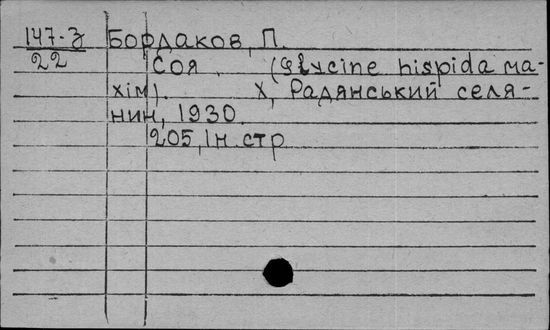 147-з Бордаков, П.
22 Соя. (Glycine hispida ма-
хім). Х, Радянський селя-
нин, 1930.
205, 1н. стр